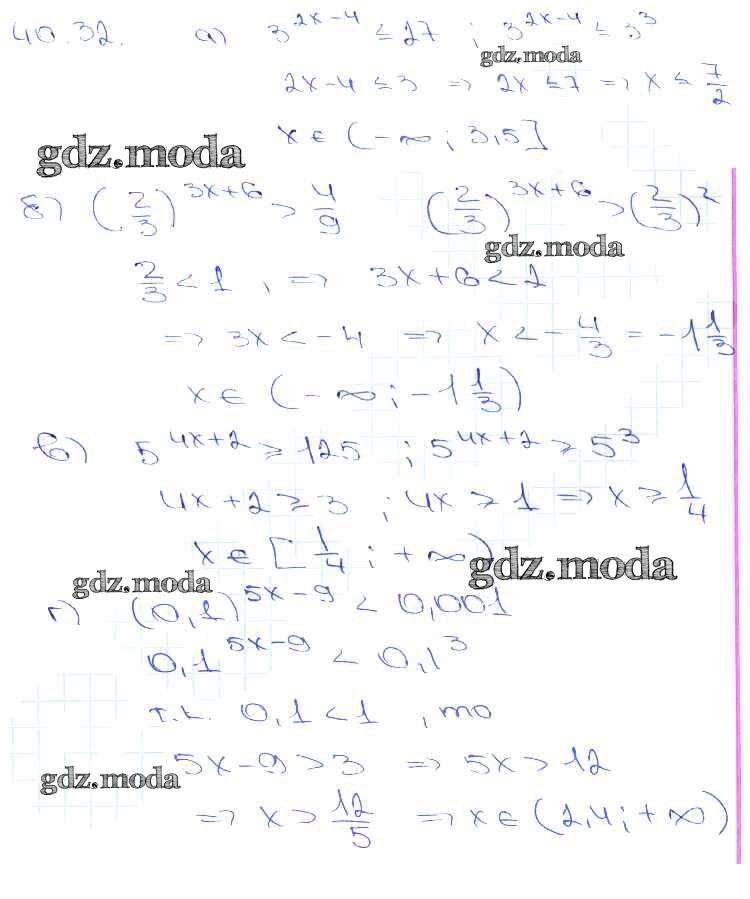 40.32. а) 3^{2x-4} ≤ 27 ; 3^{2x-4} ≤ 3^3
gdz.moda
2x-4 ≤ 3 => 2x ≤ 7 => x ≤ 7/2
x ∈ (-∞; 3,5]
gdz.moda
б) (2/3)^{3x+6} > 4/9 (2/3)^{3x+6} > (2/3)^2
gdz.moda
2/3 < 1, => 3x+6 < 2
=> 3x < -4 => x < -4/3 = -1 1/3
x ∈ (-∞; -1 1/3)
в) 5^{4x+2} ≥ 125 ; 5^{4x+2} ≥ 5^3
4x+2 ≥ 3 ; 4x ≥ 1 => x ≥ 1/4
x ∈ [1/4; +∞)
gdz.moda
gdz.moda
г) (0,1)^{5x-9} < 0,001
0,1^{5x-9} < 0,1^3
т.к. 0,1 < 1, то
5x-9 > 3 => 5x > 12
gdz.moda
=> x > 12/5 => x ∈ (2,4; +∞)